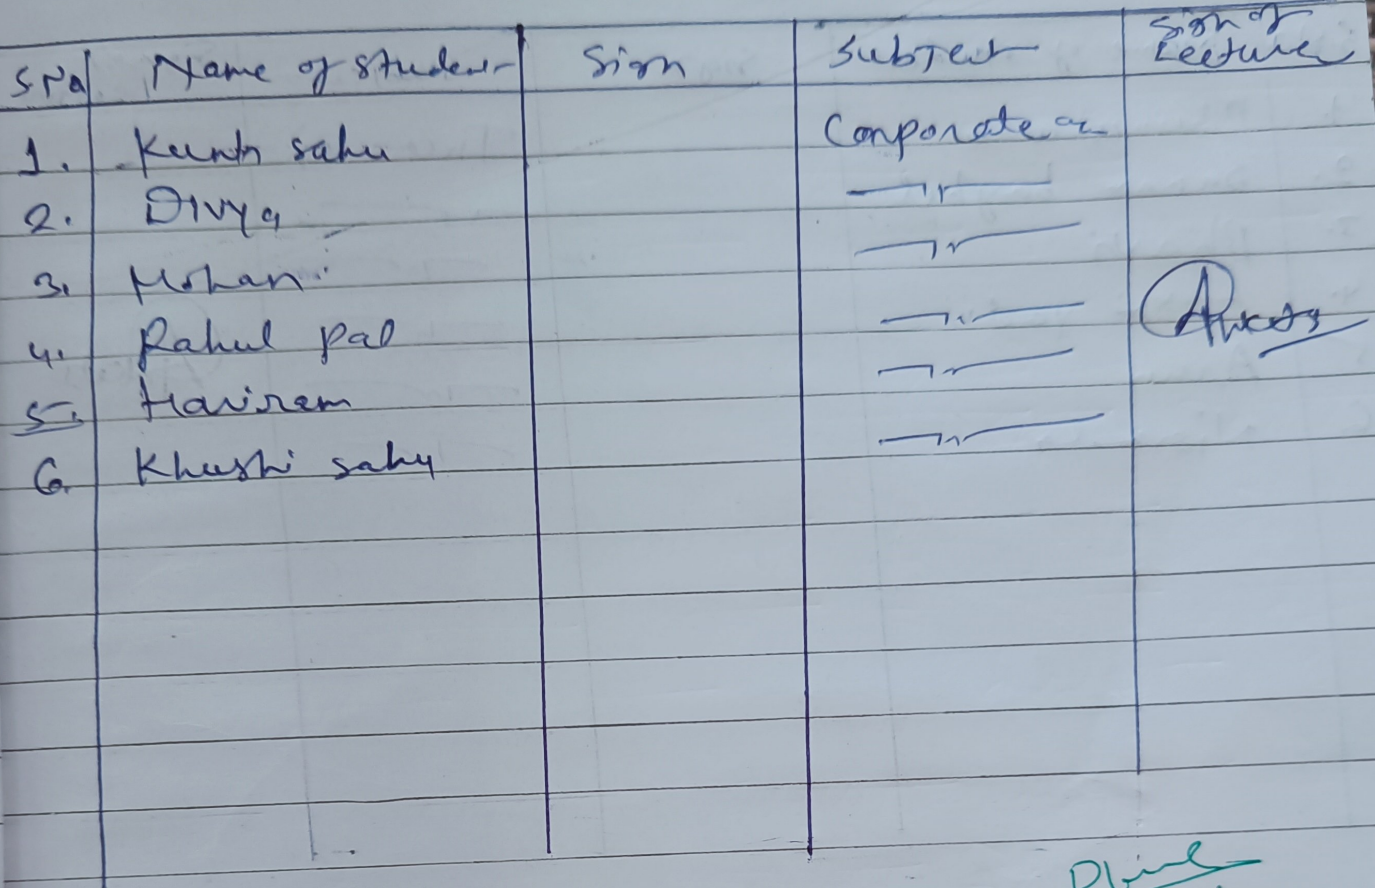 S No Name of Student Sign Subject Sign of Lecture
1. sahu Corporate
2. Divya —11—
3. Mohan —11—
4. Rahul pal —11—
5. Hariram —11—
6. Khushi sahu —11—